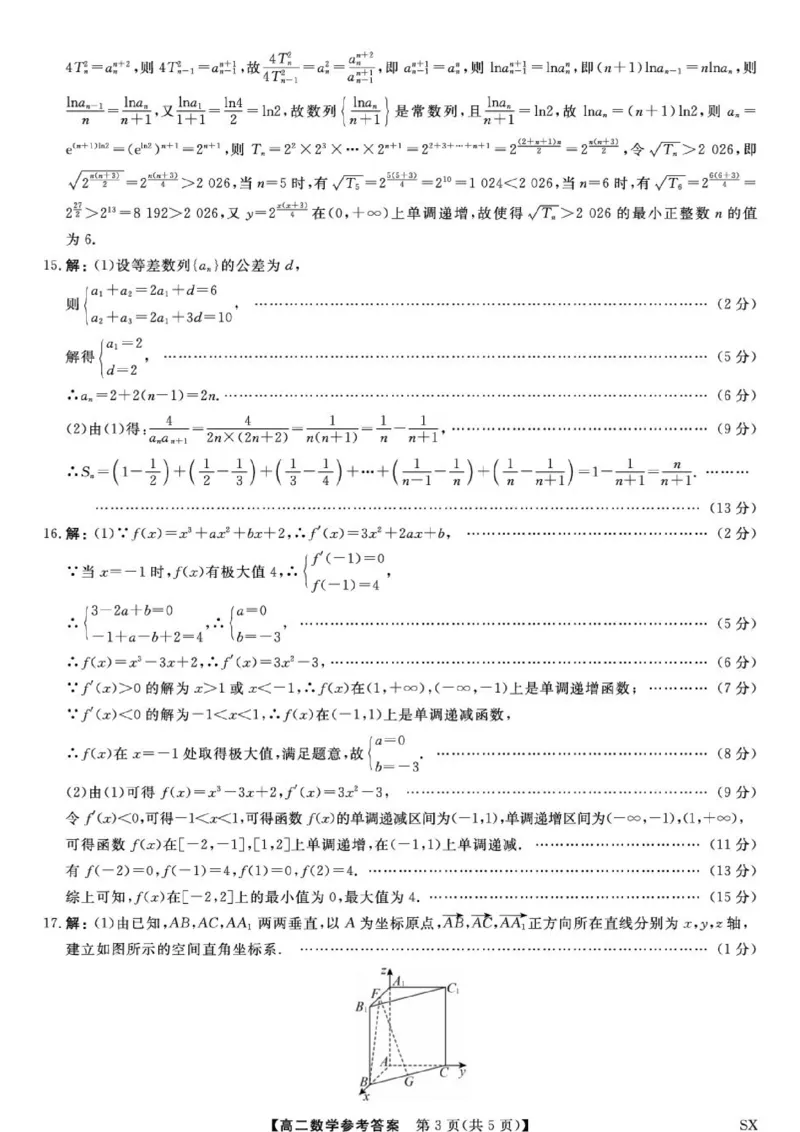 4Tₙ²=aₙⁿ⁺²,则 4Tₙ₋₁²=aₙ₋₁ⁿ⁺¹,故 4Tₙ²/4Tₙ₋₁²=aₙ²=aₙⁿ⁺²/aₙ₋₁ⁿ⁺¹,即 aₙ₋₁ⁿ⁺¹=aₙⁿ,则 lnaₙ₋₁ⁿ⁺¹=lnaₙⁿ,即(n+1)lnaₙ₋₁=nlnaₙ,则
lnaₙ₋₁/n=lnaₙ/(n+1),又 lna₁/(1+1)=ln4/2=ln2,故数列{lnaₙ/(n+1)}是常数列,且 lnaₙ/(n+1)=ln2,故 lnaₙ=(n+1)ln2,则 aₙ=
e^((n+1)ln2)=(e^(ln2))ⁿ⁺¹=2ⁿ⁺¹,则 Tₙ=2²×2³×⋯×2ⁿ⁺¹=2^(2+3+⋯+n+1)=2^((2+n+1)n/2)=2^(n(n+3)/2),令 √Tₙ>2 026,即
√(2^(n(n+3)/2))=2^(n(n+3)/4)>2 026,当 n=5 时,有 √T₅=2^(5(5+3)/4)=2¹⁰=1 024<2 026,当 n=6 时,有 √T₆=2^(6(6+3)/4)=
2^(27/2)>2¹³=8 192>2 026,又 y=2^(x(x+3)/4) 在(0,+∞)上单调递增,故使得 √Tₙ>2 026 的最小正整数 n 的值
为 6.
15.解:(1)设等差数列{aₙ}的公差为 d,
则{a₁+a₂=2a₁+d=6
a₂+a₃=2a₁+3d=10, ………… (2 分)
解得{a₁=2
d=2, ………… (5 分)
∴aₙ=2+2(n-1)=2n. ………… (6 分)
(2)由(1)得:4/(aₙaₙ₊₁)=4/(2n×(2n+2))=1/(n(n+1))=1/n-1/(n+1), ………… (9 分)
∴Sₙ=(1-1/2)+(1/2-1/3)+(1/3-1/4)+⋯+(1/(n-1)-1/n)+(1/n-1/(n+1))=1-1/(n+1)=n/(n+1). ………
………… (13 分)
16.解:(1)∵f(x)=x³+ax²+bx+2,∴f′(x)=3x²+2ax+b, ………… (2 分)
∵当 x=-1 时,f(x)有极大值 4,∴{f′(-1)=0
f(-1)=4,
∴{3-2a+b=0
-1+a-b+2=4,∴{a=0
b=-3, ………… (5 分)
∴f(x)=x³-3x+2,∴f′(x)=3x²-3, ………… (6 分)
∵f′(x)>0 的解为 x>1 或 x<-1,∴f(x)在(1,+∞),(-∞,-1)上是单调递增函数; ………… (7 分)
∵f′(x)<0 的解为-1<x<1,∴f(x)在(-1,1)上是单调递减函数,
∴f(x)在 x=-1 处取得极大值,满足题意,故{a=0
b=-3. ………… (8 分)
(2)由(1)可得 f(x)=x³-3x+2,f′(x)=3x²-3, ………… (9 分)
令 f′(x)<0,可得-1<x<1,可得函数 f(x)的单调递减区间为(-1,1),单调递增区间为(-∞,-1),(1,+∞),
可得函数 f(x)在[-2,-1],[1,2]上单调递增,在(-1,1)上单调递减. ………… (11 分)
有 f(-2)=0,f(-1)=4,f(1)=0,f(2)=4. ………… (13 分)
综上可知,f(x)在[-2,2]上的最小值为 0,最大值为 4. ………… (15 分)
17.解:(1)由已知,AB,AC,AA₁ 两两垂直,以 A 为坐标原点,AB→,AC→,AA₁→正方向所在直线分别为 x,y,z 轴,
建立如图所示的空间直角坐标系. ………… (1 分)
z
A₁
C₁
F
B₁
A
C
y
B
G
x
【高二数学参考答案 第 3 页(共 5 页)】
SX